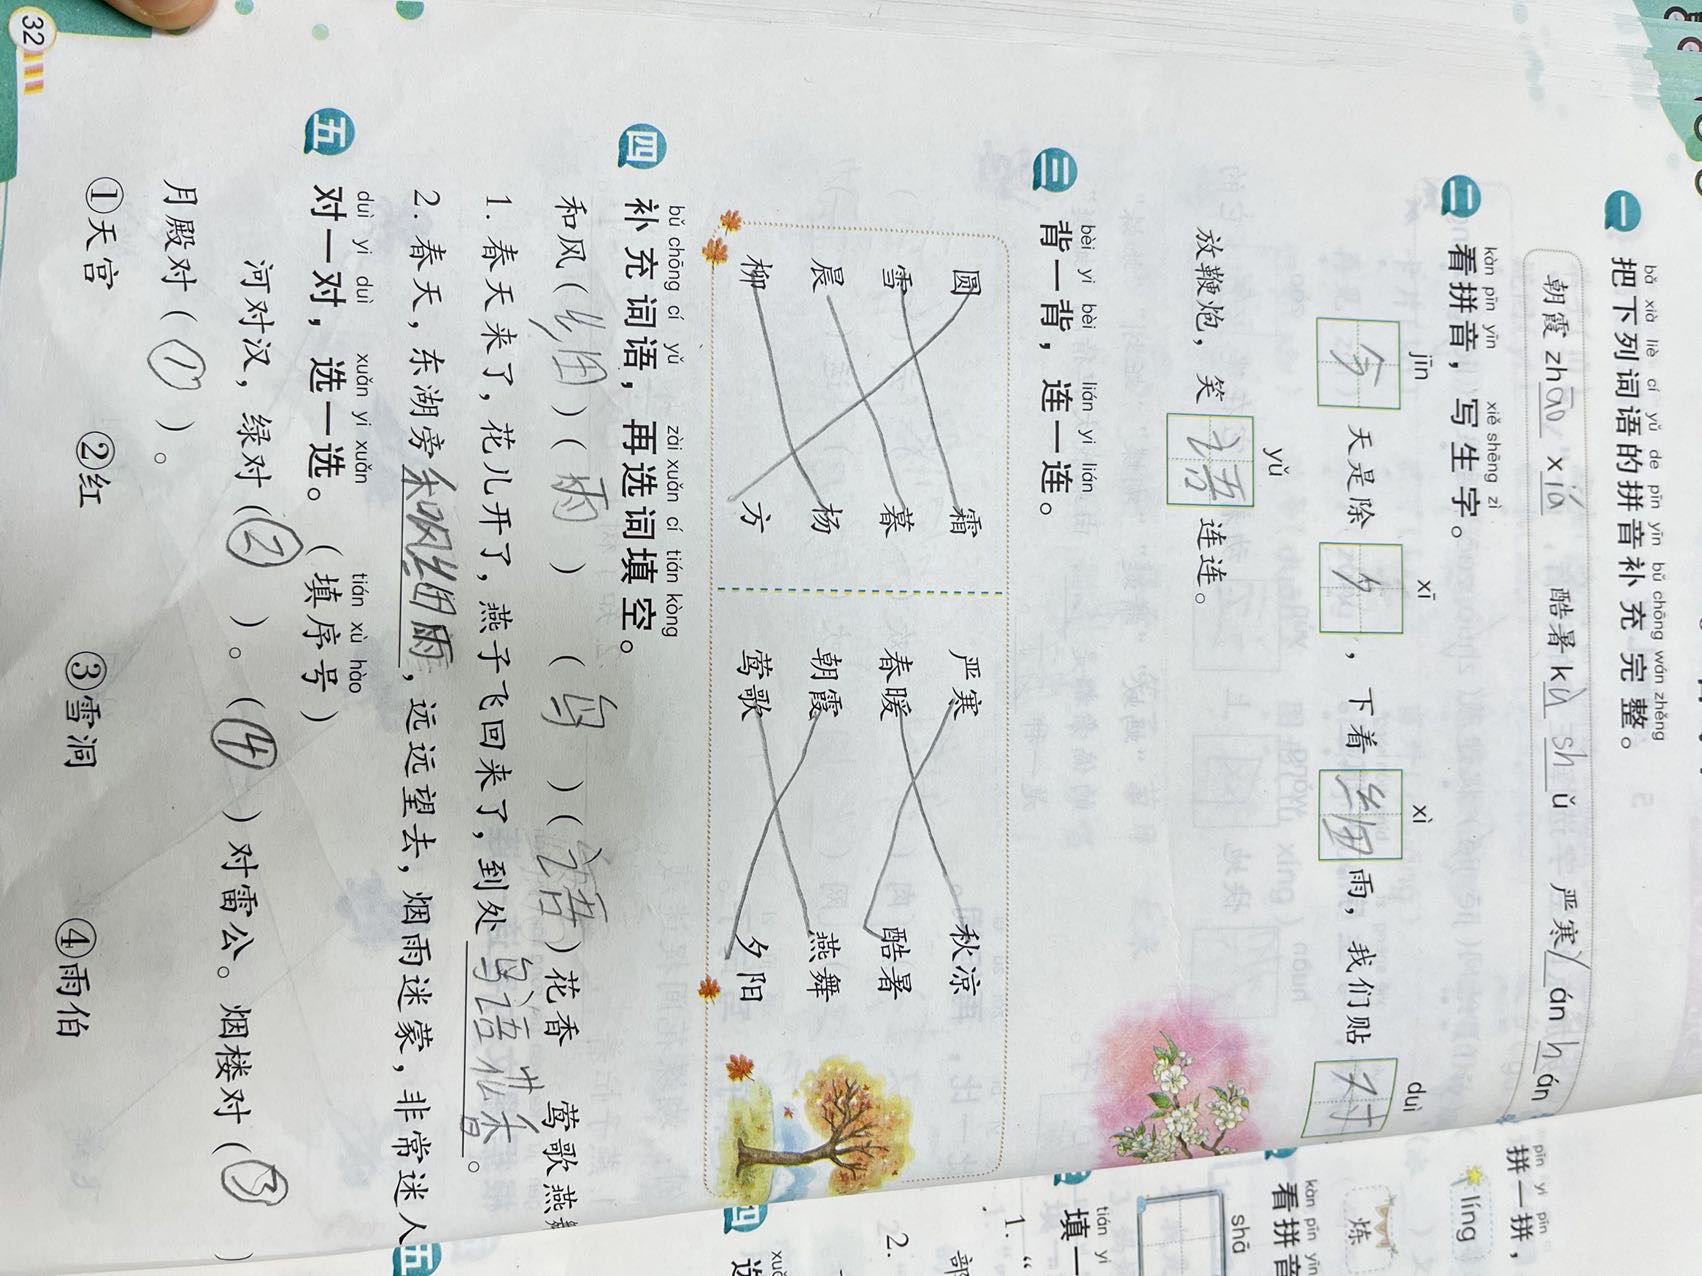 bǎ xià liè cí yǔ de pīn yīn bǔ chōng wán zhěng
一 把下列词语的拼音补充完整。
朝霞 zhāo xiá 酷暑 kù shǔ 严寒 yán hán
kàn pīn yīn xiě shēng zì
二 看拼音，写生字。
jīn xī xì duì
今天是除夕，下着细雨，我们贴对
yǔ
放鞭炮，笑语连连。
bèi yi bèi lián yi lián
三 背一背，连一连。
圆 霜 严寒 秋凉
雪 暮 春暖 酷暑
晨 杨 朝霞 燕舞
柳 方 莺歌 夕阳
bǔ chōng cí yǔ zài xuǎn cí tián kòng
四 补充词语，再选词填空。
和风（细）（雨） （鸟）（语）花香 莺歌燕
1. 春天来了，花儿开了，燕子飞回来了，到处鸟语花香。
2. 春天，东湖旁和风细雨，远远望去，烟雨迷蒙，非常迷人
duì yi duì xuǎn yi xuǎn tián xù hào
五 对一对，选一选。（填序号）
河对汉，绿对（②）。（④）对雷公。烟楼对（③）
月殿对（①）。
①天宫 ②红 ③雪洞 ④雨伯
32
pīn yi pīn
拼一拼，
líng
炼
kàn pīn yīn
看拼音
shā
tián yi
填一
1. “
部
2.
四
xuǎ
选
五